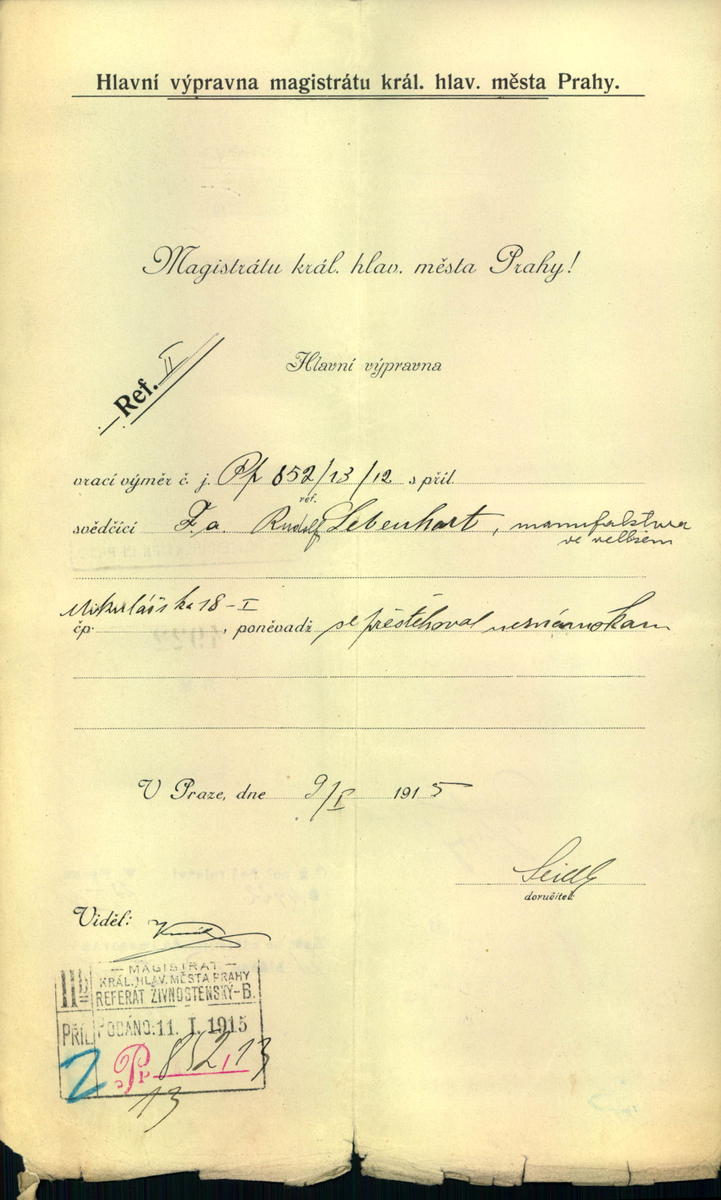 Hlavní výpravna magistrátu král. hlav. města Prahy.
Magistrátu král. hlav. města Prahy!
Ref. II
Hlavní výpravna
vrací výměr č. j. Pf 852/13/12 s příl.
svědčící Fa. Rudolf Lebenhart, manufaktura
ve velkém
Mikulášska 18-I
čp. , poněvadž se přestěhoval neznámo kam
V Praze, dne 9/I 1915
Seidl
doručitel.
Viděl:
IIb
— MAGISTRÁT —
KRÁL. HLAV. MĚSTA PRAHY
REFERÁT ŽIVNOSTENSKÝ-B.
PŘÍL. PODÁNO: 11. I. 1915
2 Pr 852, 13
13